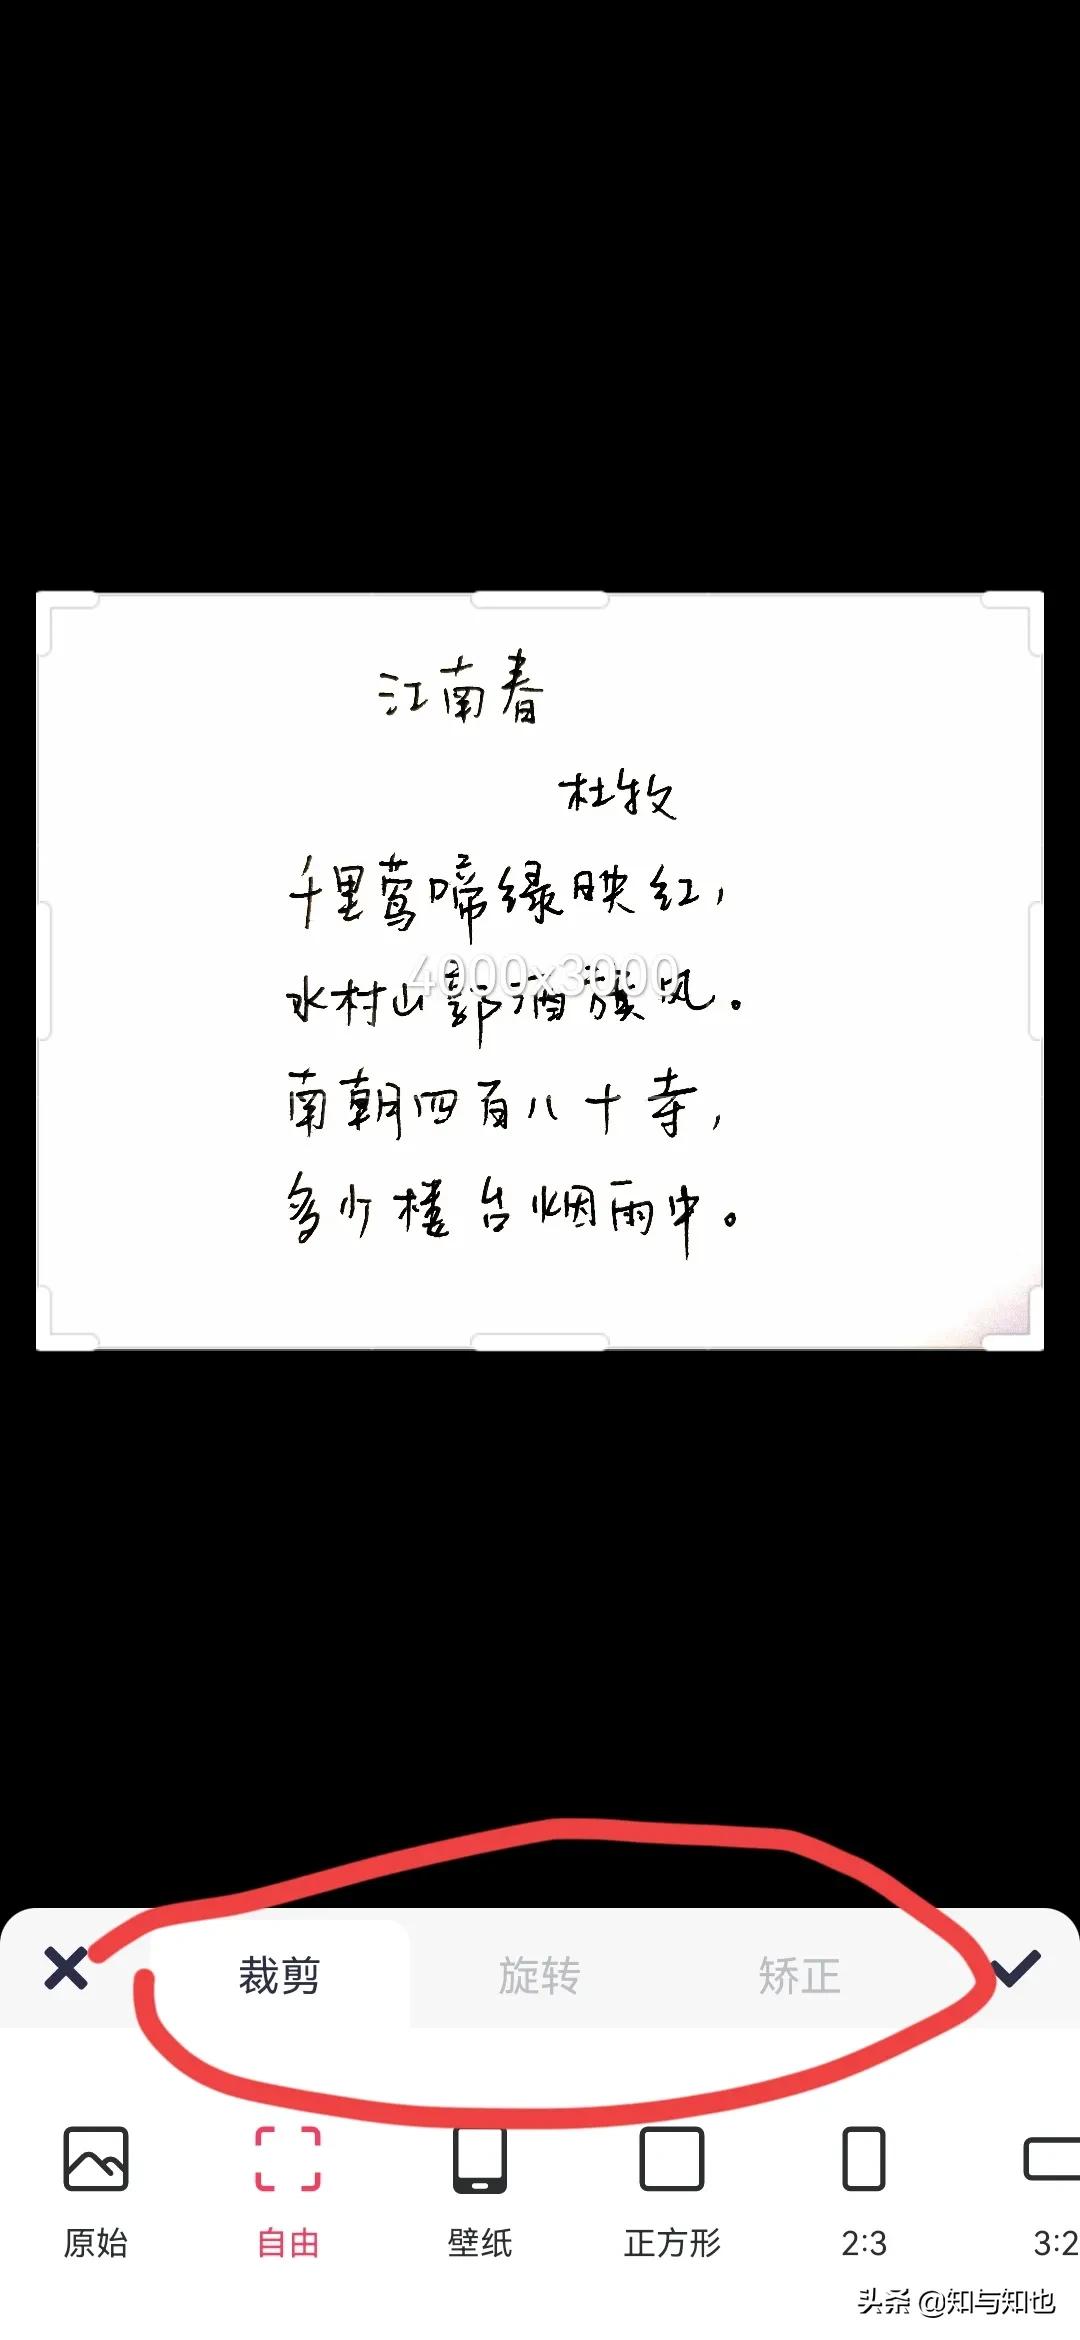 江南春
杜牧
千里莺啼绿映红，
水村山郭酒旗风。
4000x3000
南朝四百八十寺，
多少楼台烟雨中。
裁剪 旋转 矫正
原始 自由 壁纸 正方形 2:3 3:2
头条 @知与知也